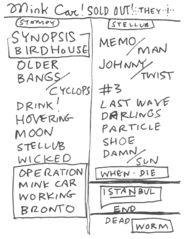 Mink Car! SOLD OUT! THEY!
STOMPEY
SYNOPSIS
BIRDHOUSE
OLDER
BANGS/
CYCLOPS
DRINK!
HOVERING
MOON
STELLUB
WICKED
OPERATION
MINK CAR
WORKING
BRONTO
STELLUB
MEMO/
MAN
JOHNNY/
TWIST
#3
LAST WAVE
DARLINGS
PARTICLE
SHOE
DAMN/
SUN
WHEN DIE
ISTANBUL
END
DEAD
WORM